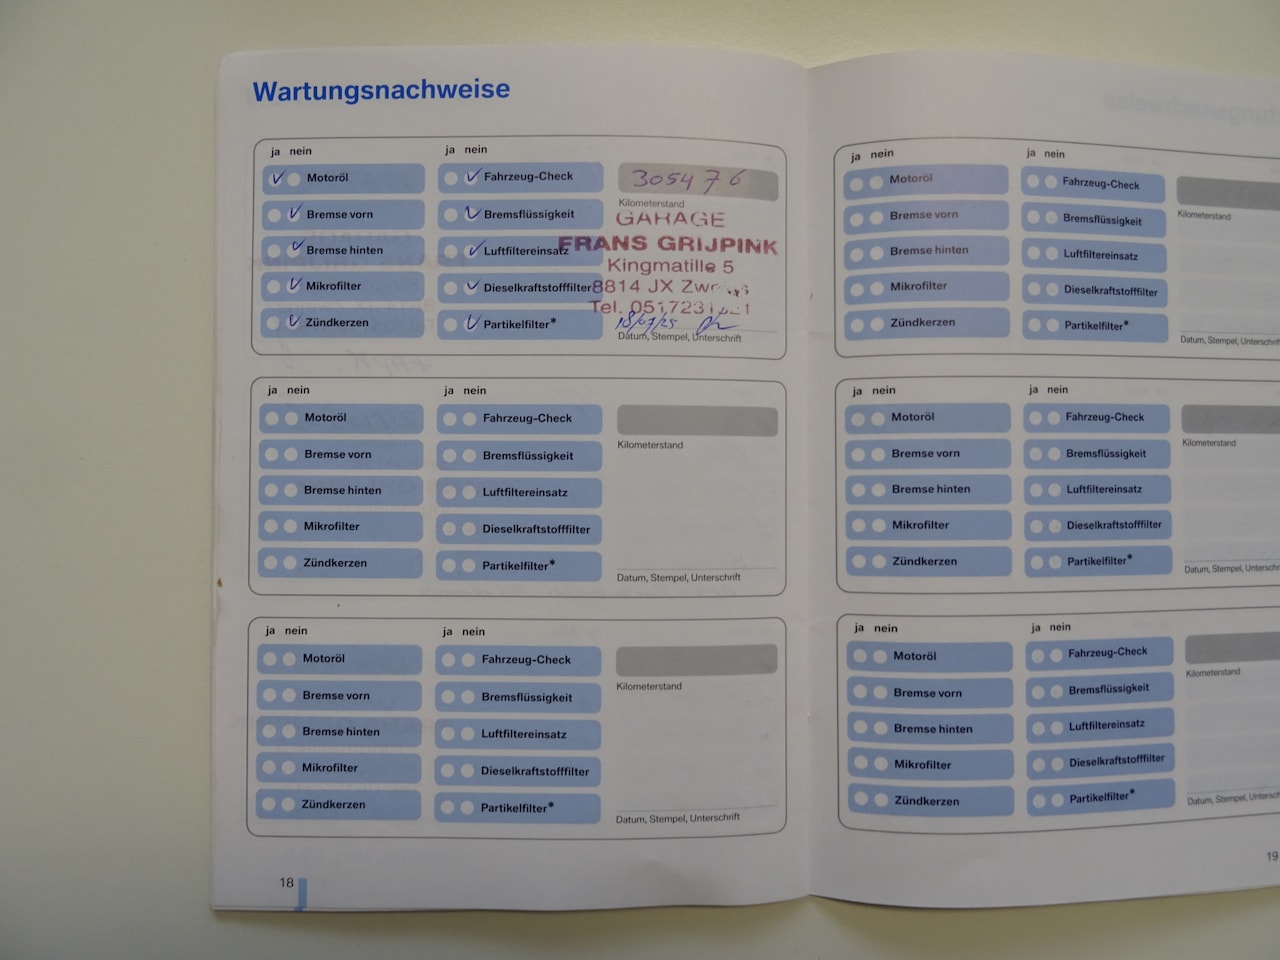 Wartungsnachweise
ja nein
Motoröl
Bremse vorn
Bremse hinten
Mikrofilter
Zündkerzen
ja nein
Fahrzeug-Check
Bremsflüssigkeit
Luftfiltereinsatz
Dieselkraftstofffilter
Partikelfilter*
305476
Kilometerstand
GARAGE
FRANS GRIJPINK
Kingmatille 5
8814 JX
Tel.
18/07/25
Datum, Stempel, Unterschrift
ja nein
Motoröl
Bremse vorn
Bremse hinten
Mikrofilter
Zündkerzen
ja nein
Fahrzeug-Check
Bremsflüssigkeit
Luftfiltereinsatz
Dieselkraftstofffilter
Partikelfilter*
Kilometerstand
Datum, Stempel, Unterschrift
ja nein
Motoröl
Bremse vorn
Bremse hinten
Mikrofilter
Zündkerzen
ja nein
Fahrzeug-Check
Bremsflüssigkeit
Luftfiltereinsatz
Dieselkraftstofffilter
Partikelfilter*
Kilometerstand
Datum, Stempel, Unterschrift
18
ja nein
Motoröl
Bremse vorn
Bremse hinten
Mikrofilter
Zündkerzen
ja nein
Fahrzeug-Check
Bremsflüssigkeit
Luftfiltereinsatz
Dieselkraftstofffilter
Partikelfilter*
Kilometerstand
Datum, Stempel, Unterschrift
ja nein
Motoröl
Bremse vorn
Bremse hinten
Mikrofilter
Zündkerzen
ja nein
Fahrzeug-Check
Bremsflüssigkeit
Luftfiltereinsatz
Dieselkraftstofffilter
Partikelfilter*
Kilometerstand
Datum, Stempel, Unterschr
ja nein
Motoröl
Bremse vorn
Bremse hinten
Mikrofilter
Zündkerzen
ja nein
Fahrzeug-Check
Bremsflüssigkeit
Luftfiltereinsatz
Dieselkraftstofffilter
Partikelfilter*
Kilometerstand
Datum, Stempel, Untersch
19